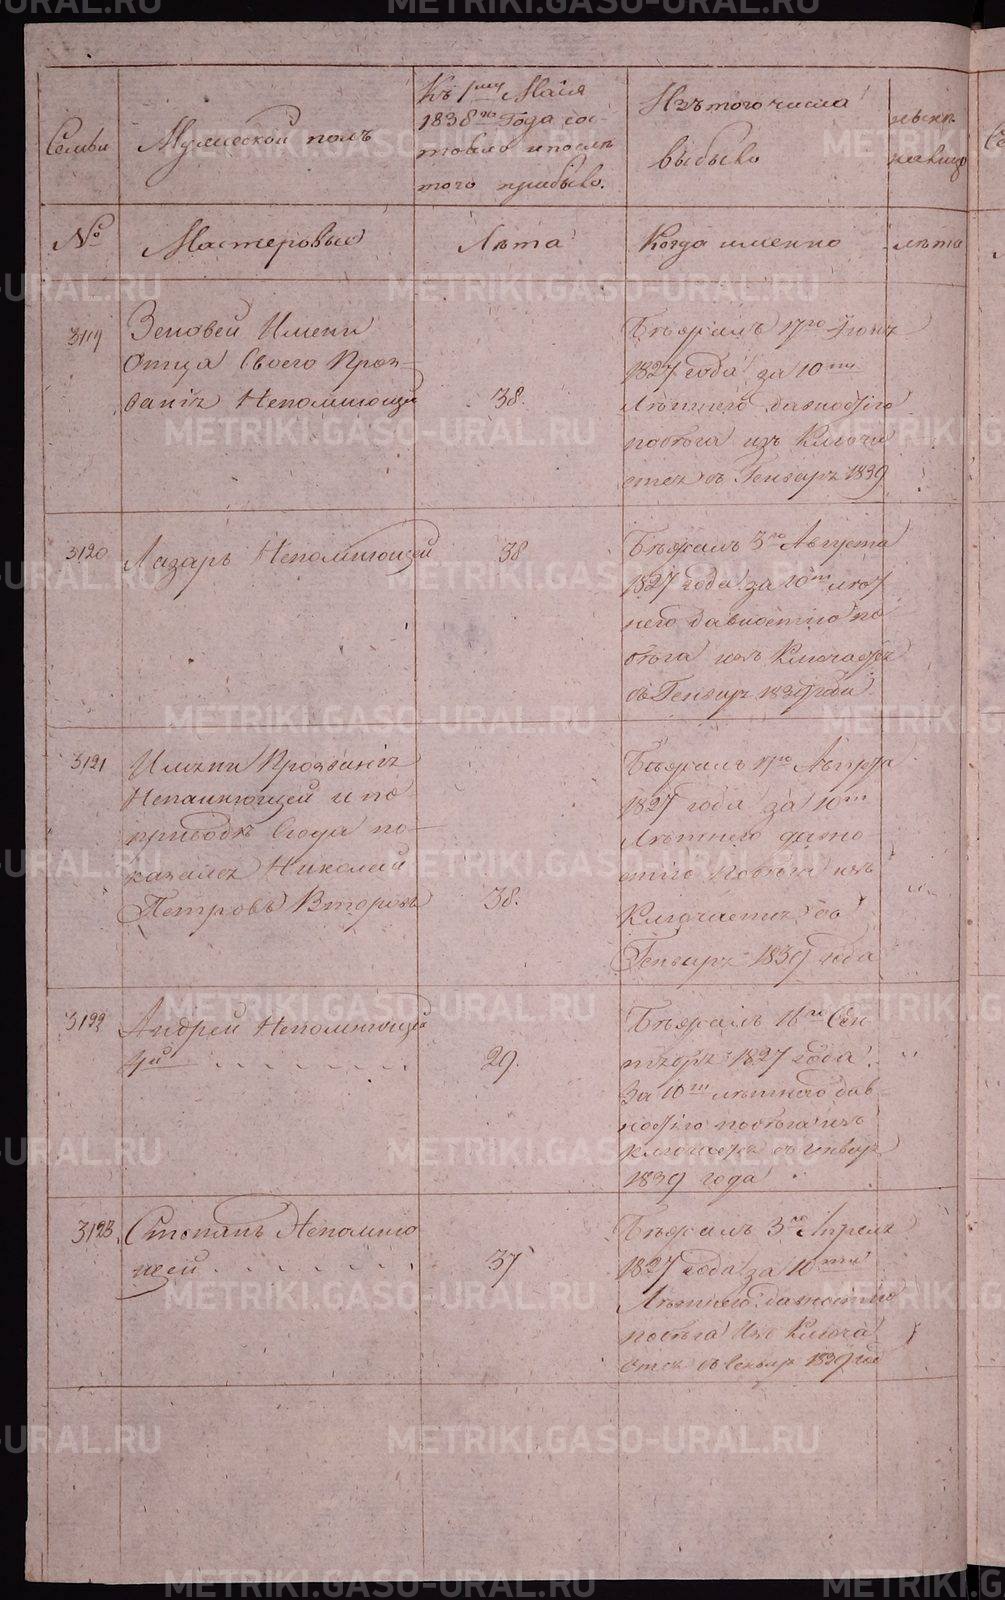 METRIKI.GASO-URAL.RU
Семьи
Мужеской полъ
Къ 1му Майя
1838го Года сос-
тояло и послѣ
того прибыло.
Изъ того числа
выбыло
нынѣ
№
Мастеровые
Лѣта
Когда именно
лѣта
3119
Зеновей Имени
Отца Своего Проз-
ванія Непомнющи
38.
Бѣжалъ 17го
1827 года за 10ти
Лѣтнего давностію
побѣга изъ Ключа
ется въ Генваре 1839
3120
Лазарь Непомнющей
38
Бѣжалъ 3го Августа
1827 года за 10ти лѣт
него давностію по
бѣга изъ Ключается
въ Генварѣ 1839 года
3121
Имени Прозванія
Непомнющей и по
приводѣ Сюда по-
казался Николай
Петровъ Второй
38.
Бѣжалъ 17го Августа
1827 года за 10ти
Лѣтнего давно-
стію побѣга изъ
Ключается въ
Генварѣ 1839 года
3122
Андрей Непомнющей
4й
29.
Бѣжалъ 16го Сен
тября 1827 года
За 10ти лѣтнего дав-
ностію побѣга изъ
ключается въ Генвар
1839 года
3123.
Степанъ Непомню
щей
37
Бѣжалъ 3го Апреля
1827 года за 10ти
Лѣтнего давностію
побѣга Изъ Ключа
ется въ Генвар 1839 год